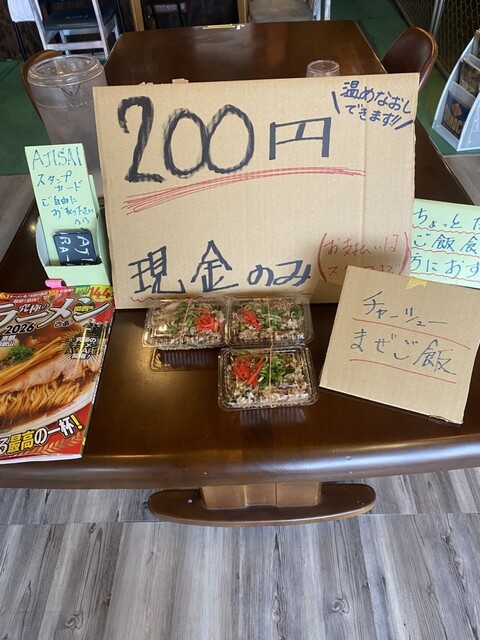 200円
温めなおし
できます!!
現金のみ
お支払いは
AJISAI
スタンプ
カード
ご自由に
お取り下さい
ちょっと
ご飯
うにおす
チャーシュー
まぜご飯
究極の
ラーメン
2026
最高の一杯!